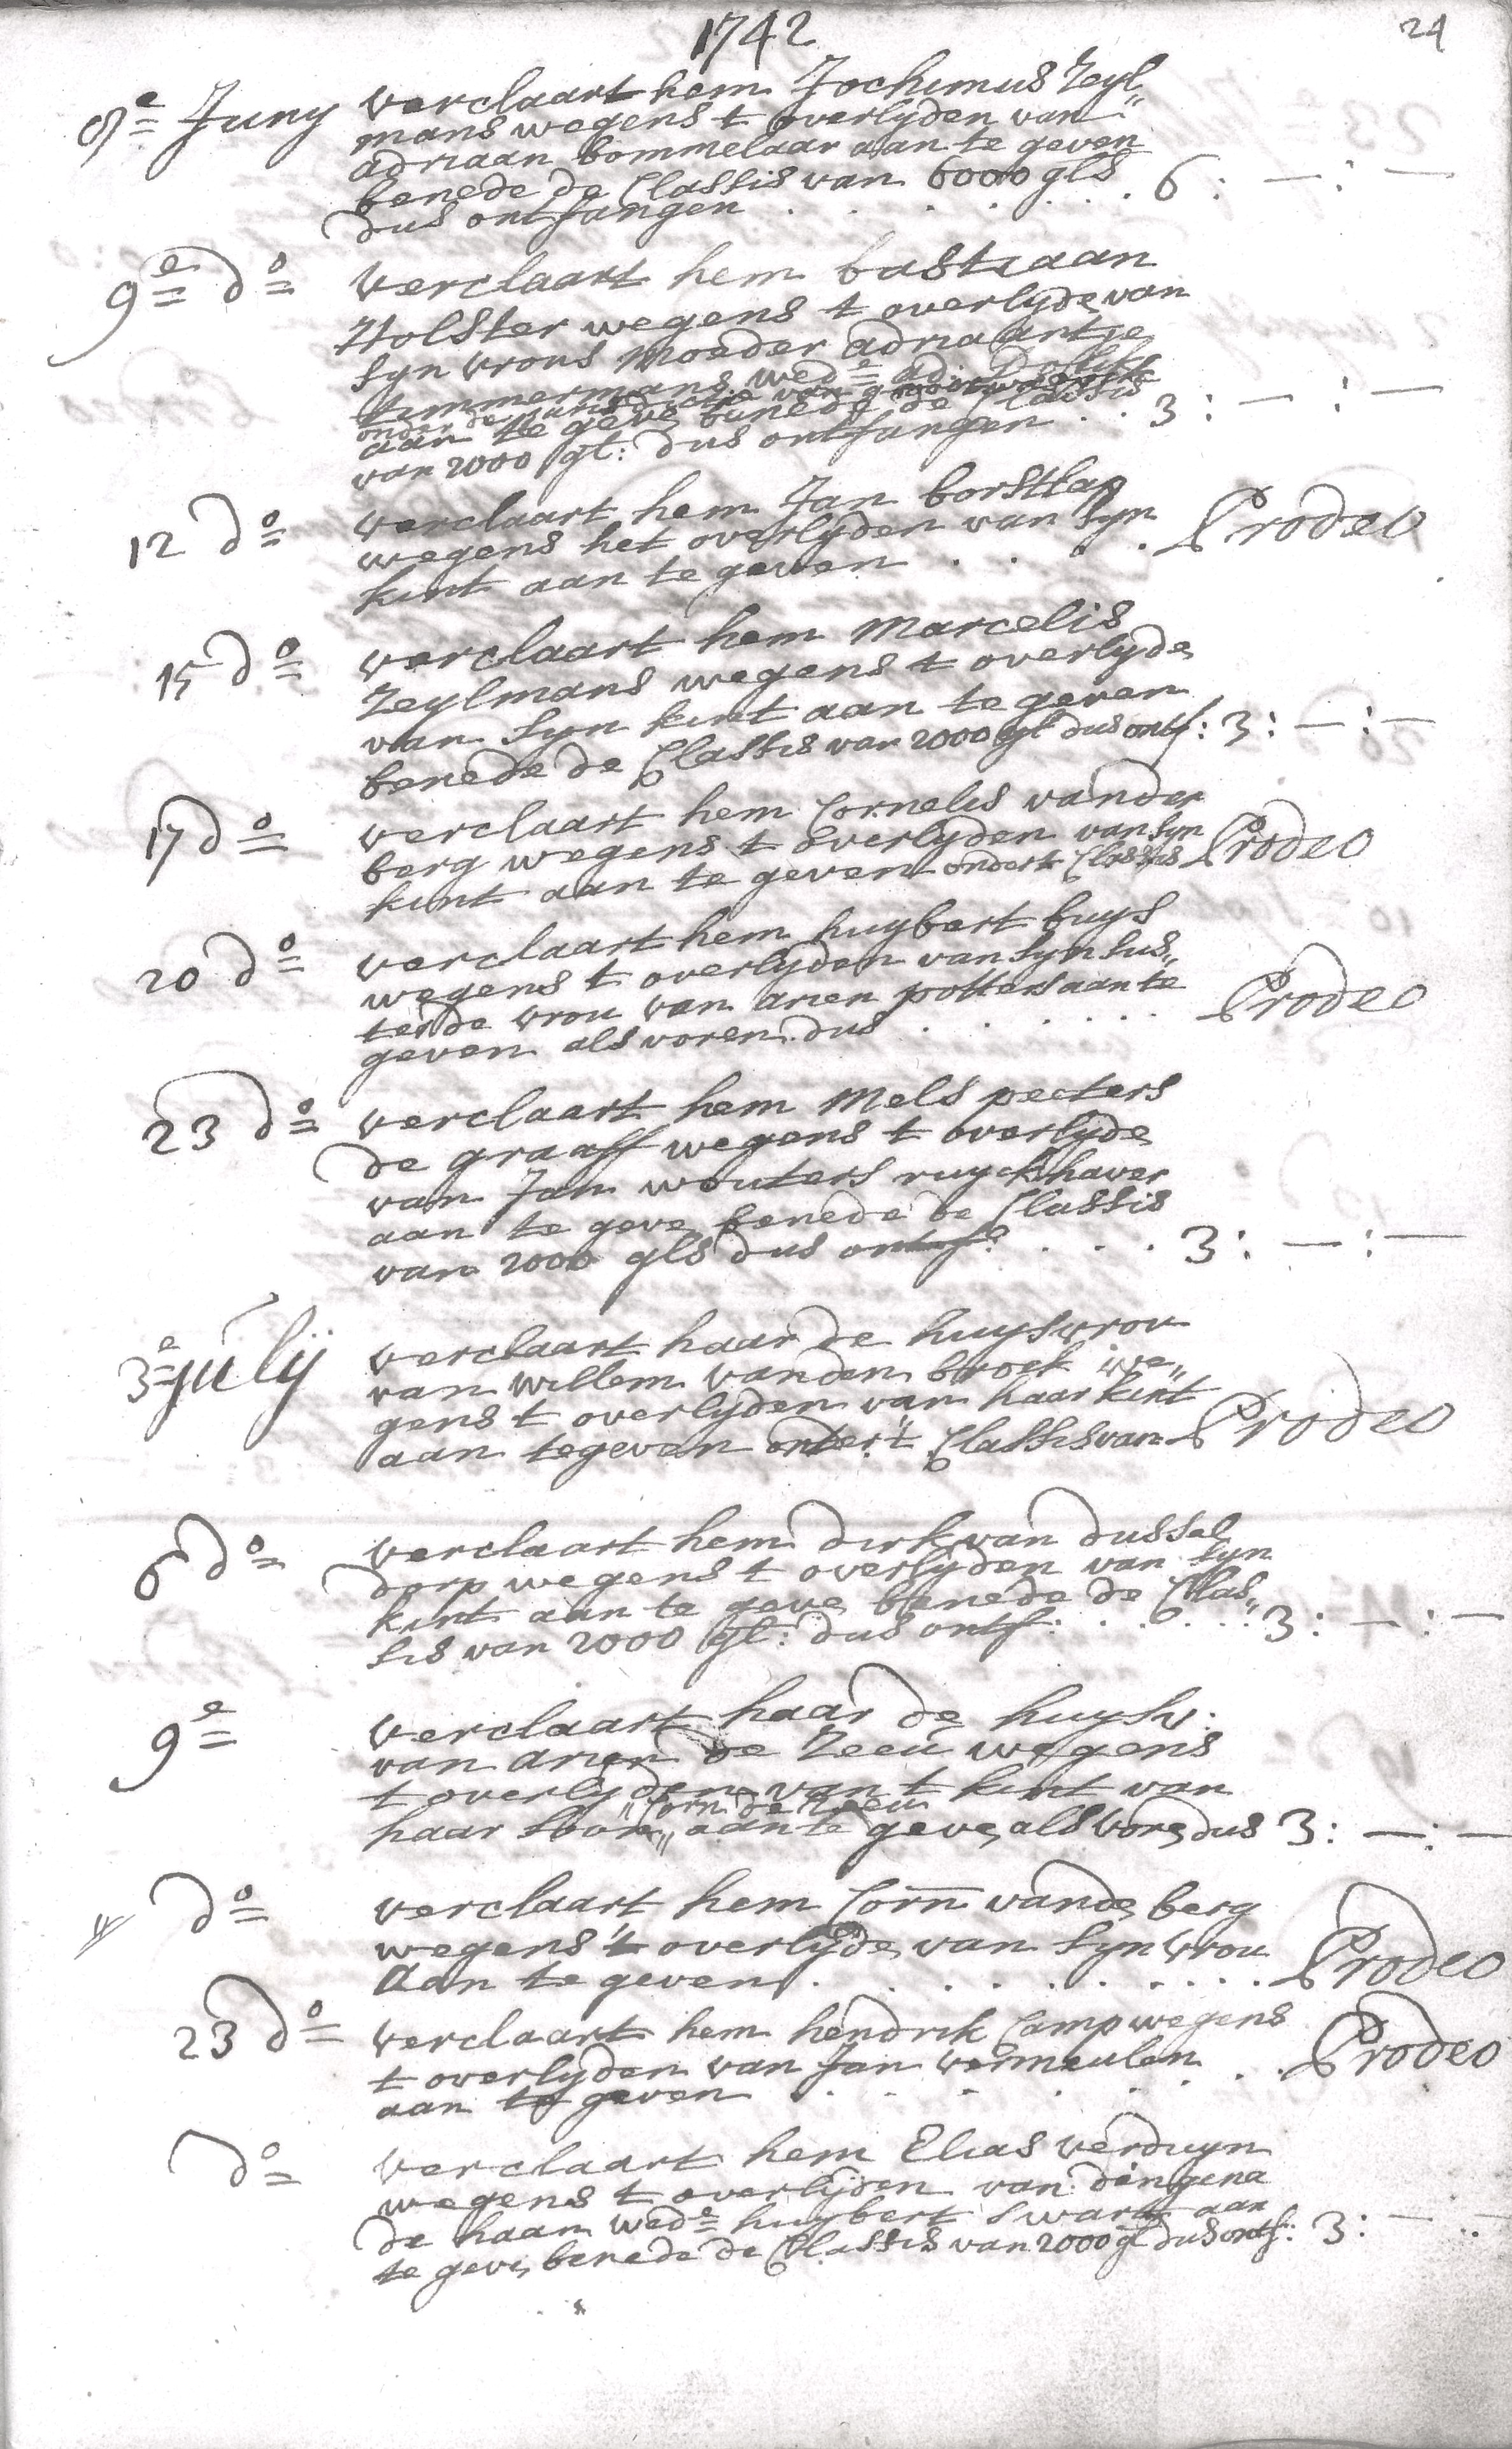 1742
24
8e Juny verclaart hem Jochimus Zeyl„
mans wegens t overlyden van
adriaan bommelaar aan te geven
benede de Classis van 6000 gls
dus ontfangen . . . . . . 6 : — : —
9e do verclaart hem bastiaan
Holster wegens t overlyde van
syn vrous Moeder adriaantje
timmermans wede adr:
onder de van
aan te geve benede de Classis
van 2000 gl: dus ontfangen . . 3 : — : —
12 do verclaart hem Jan borstlap
wegens het overlyden van syn
kint aan te geven . . . . Prodeo
15 do verclaart hem Marcelis
Zeylmans wegens t overlyde
van syn kint aan te geven
benede de Classis van 2000 gl dus ontf: 3 : — : —
17 do verclaart hem Cornelis vander
berg wegens t overlyden van syn
kint aan te geven ondert Classis Prodeo
20 do verclaart hem huybert buys
wegens t overlyden van syn sus„
ter de vrou van arien potters aan te
geven als voren dus . . . . . . Prodeo
23 do verclaart hem Mels peeters
de graaff wegens t overlyde
van Jan wouters ruyckhaver
aan te geve benede de Classis
van 2000 gls dus ontf: . . . 3 : — : —
3e july verclaart haar de huysvrou
van willem vanden broek we„
gens t overlyden van haar kint
aan tegeven onder't Classis van Prodeo
6 do verclaart hem dirk van dussel
dorp wegens t overlyden van syn
kint aan te geve benede de Clas„
sis van 2000 gl: dus ontf: . . . . 3 : — : —
9e verclaart haar de huysv:
van arien de Zeeu wegens
t overlyden van t kint van
„Corn: de Zeeu
haar soon„ aan te geve als vore dus 3 : — : —
do verclaart hem Corn vande berg
wegens 't overlyde van syn vrou
Aan te geven . . . . . . . . . Prodeo
23 do verclaart hem hendrik Camp wegens
t overlyden van Jan vermeulen
aan te geven . . . . . . . Prodeo
do verclaart hem Elias verduyn
wegens t overlyden van dingena
de haan wede huybert swart aan
te geve benede de Classis van 2000 gl dus ontf: 3 : — : —